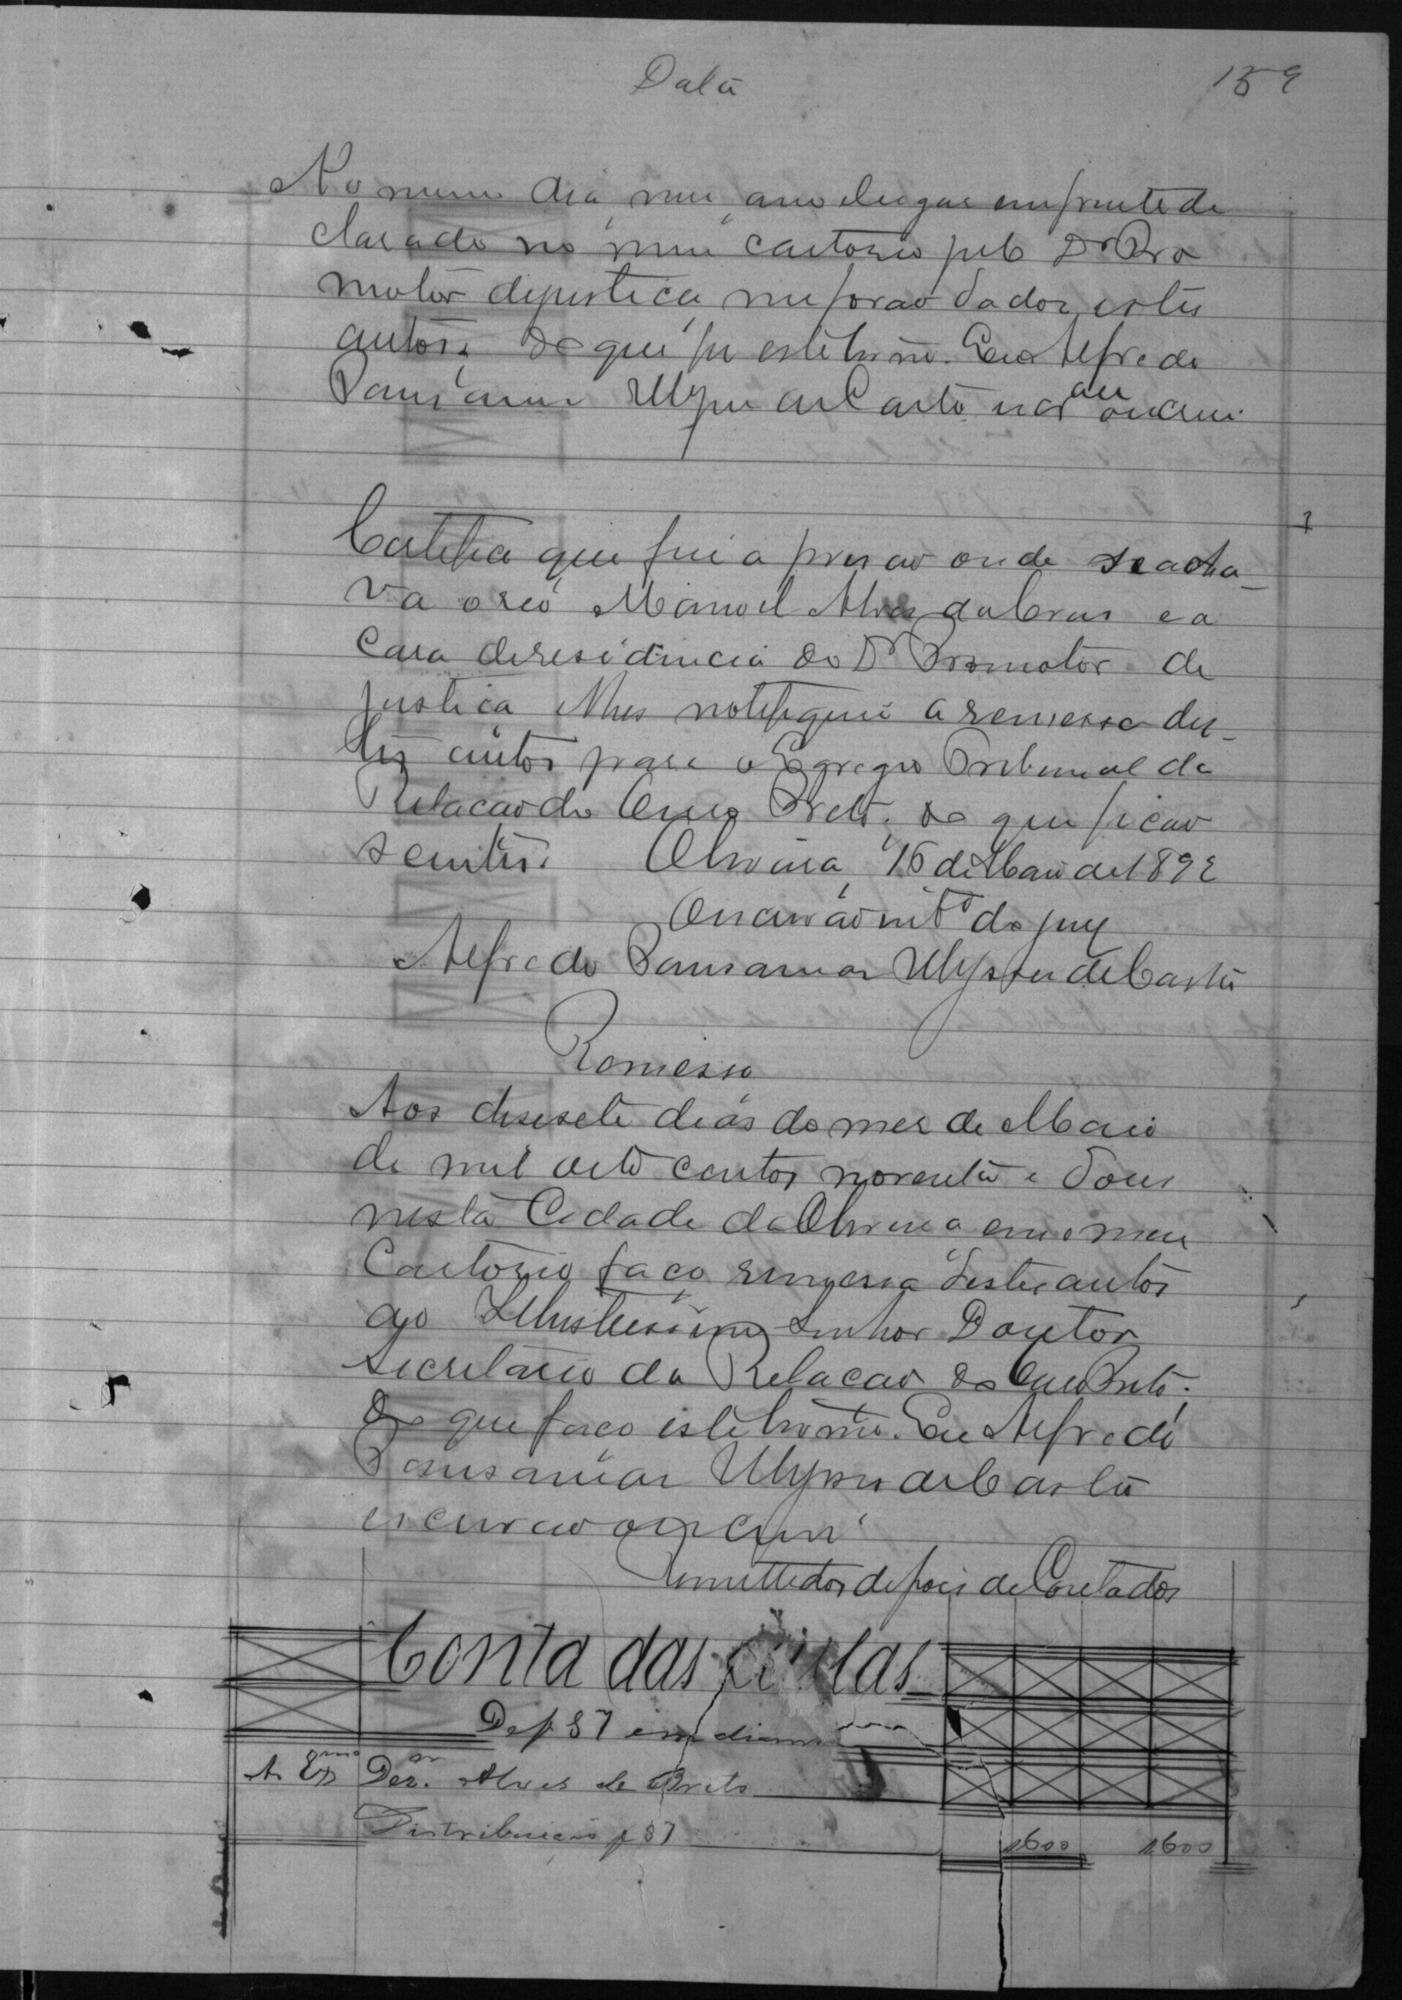 Data
159
No mesmo dia, mes, anno e lugar em frente de
clarado no meu cartorio pelo Dr Pro
motor de justiça me forão dados estes
autos; do que fis este termo. Eu Alfredo
Pausanias Ulysses de Castro escrivão
Certifico que fui a prisão onde se acha-
va o réo Manoel Alves da Cruz e a
casa de residencia do Dr Promotor de
Justiça e lhes notifiquei a remessa des-
tes autos para o Egregio Tribunal da
Relação do Ouro Preto; do que ficão
scientes. Oliveira, 16 de Maio de 1892
O escrivão do jury
Alfredo Pausanias Ulysses de Castro
Remessa
Aos desesete dias do mes de Maio
de mil oito centos noventa e dous
nesta Cidade da Oliveira em o meu
Cartorio faço remessa destes autos
ao Illustrissimo Senhor Doutor
Secretario da Relação do Ouro Preto;
do que faço este termo. Eu Alfredo
Pausanias Ulysses de Castro
escrivão o escrevi
Remettidos depois de Contados
Conta das custas
De f 87 em diante
Ao Exmo Desor. Alves de Brito
Distribuição f 87 1600 1600